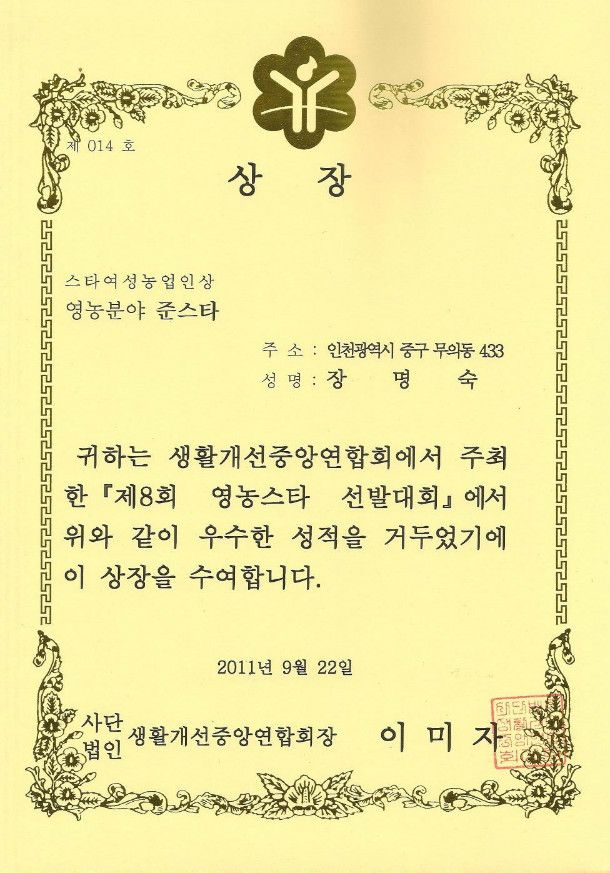 제 014 호
상 장
스타여성농업인상
영농분야 준스타
주 소 : 인천광역시 중구 무의동 433
성 명 : 장 명 숙
귀하는 생활개선중앙연합회에서 주최
한 『제8회 영농스타 선발대회』에서
위와 같이 우수한 성적을 거두었기에
이 상장을 수여합니다.
2011년 9월 22일
사단
법인 생활개선중앙연합회장 이 미 자